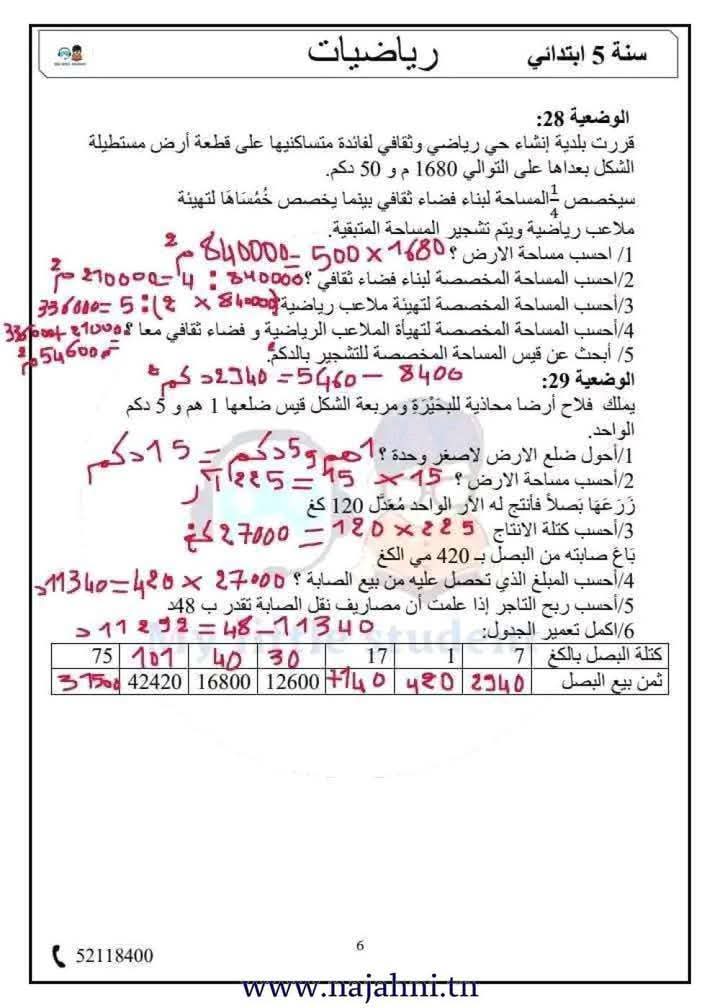 سنة 5 ابتدائي
رياضيات
الوضعية 28:
قررت بلدية إنشاء حي رياضي وثقافي لفائدة متساكنيها على قطعة أرض مستطيلة
الشكل بعداها على التوالي 1680 م و 50 دكم.
سيخصص 1/4 المساحة لبناء فضاء ثقافي بينما يخصص خُمُسَاهَا لتهيئة
ملاعب رياضية ويتم تشجير المساحة المتبقية.
1/ احسب مساحة الارض ؟ 1680 × 500 = 840000 م²
2/احسب المساحة المخصصة لبناء فضاء ثقافي ؟ 840000 : 4 = 210000 م²
3/أحسب المساحة المخصصة لتهيئة ملاعب رياضية (840000 × 2) : 5 = 336000
4/أحسب المساحة المخصصة لتهيأة الملاعب الرياضية و فضاء ثقافي معا ؟ 210000 + 336000
= 546000 م²
5/ أبحث عن قيس المساحة المخصصة للتشجير بالدكم².
8400 – 5460 = 2940 دكم²
الوضعية 29:
يملك فلاح أرضا محاذية للبحَيْرَةِ ومربعة الشكل قيس ضلعها 1 هم و 5 دكم
الواحد.
1/أحول ضلع الارض لاصغر وحدة ؟ 1هم و5دكم = 15 دكم
2/أحسب مساحة الارض ؟ 15 × 15 = 225 آر
زَرَعَهَا بَصلاً فأنتج له الآر الواحد مُعَدَّل 120 كغ
3/أحسب كتلة الانتاج 225 × 120 = 27000 كغ
بَاعَ صابته من البصل بـ 420 مي الكغ
4/أحسب المبلغ الذي تحصل عليه من بيع الصابة ؟ 27000 × 420 = 11340د
5/أحسب ربح التاجر إذا علمت أن مصاريف نقل الصابة تقدر ب 48د
11340 – 48 = 11292 د
6/اكمل تعمير الجدول:
My little student
كتلة البصل بالكغ 7 1 17 30 40 101 75
ثمن بيع البصل 2940 420 7140 12600 16800 42420 31500
52118400
6
www.najahni.tn